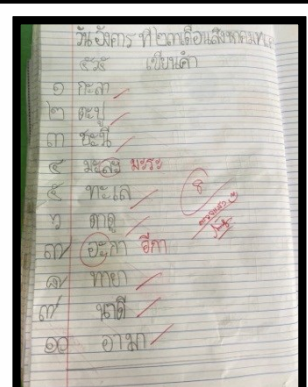 วันอังคาร ที่ ๒๓ เดือนสิงหาคม พ.ศ.
๕๖๕ เขียนคำ
๑ กะลา
๒ ตะปู
๓ ชะนี
๔ มะละ มะระ
๕ ทะเล
๖ ตาดู
๗ อะกา อีกา
๘ ทายา
๙ นาดี
๑๐ อามา
8